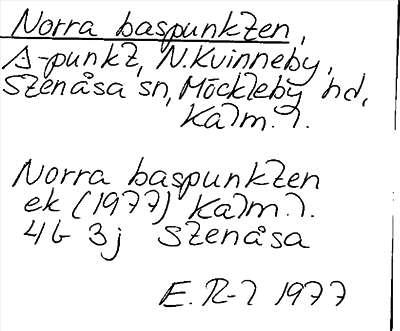 Norra baspunkten,
A-punkt, N. Kvinneby,
Stenåsa sn, Möckleby hd,
Kalm. l.
Norra baspunkten
ek (1977) Kalm. l.
4G 3j Stenåsa
E. R-l 1977